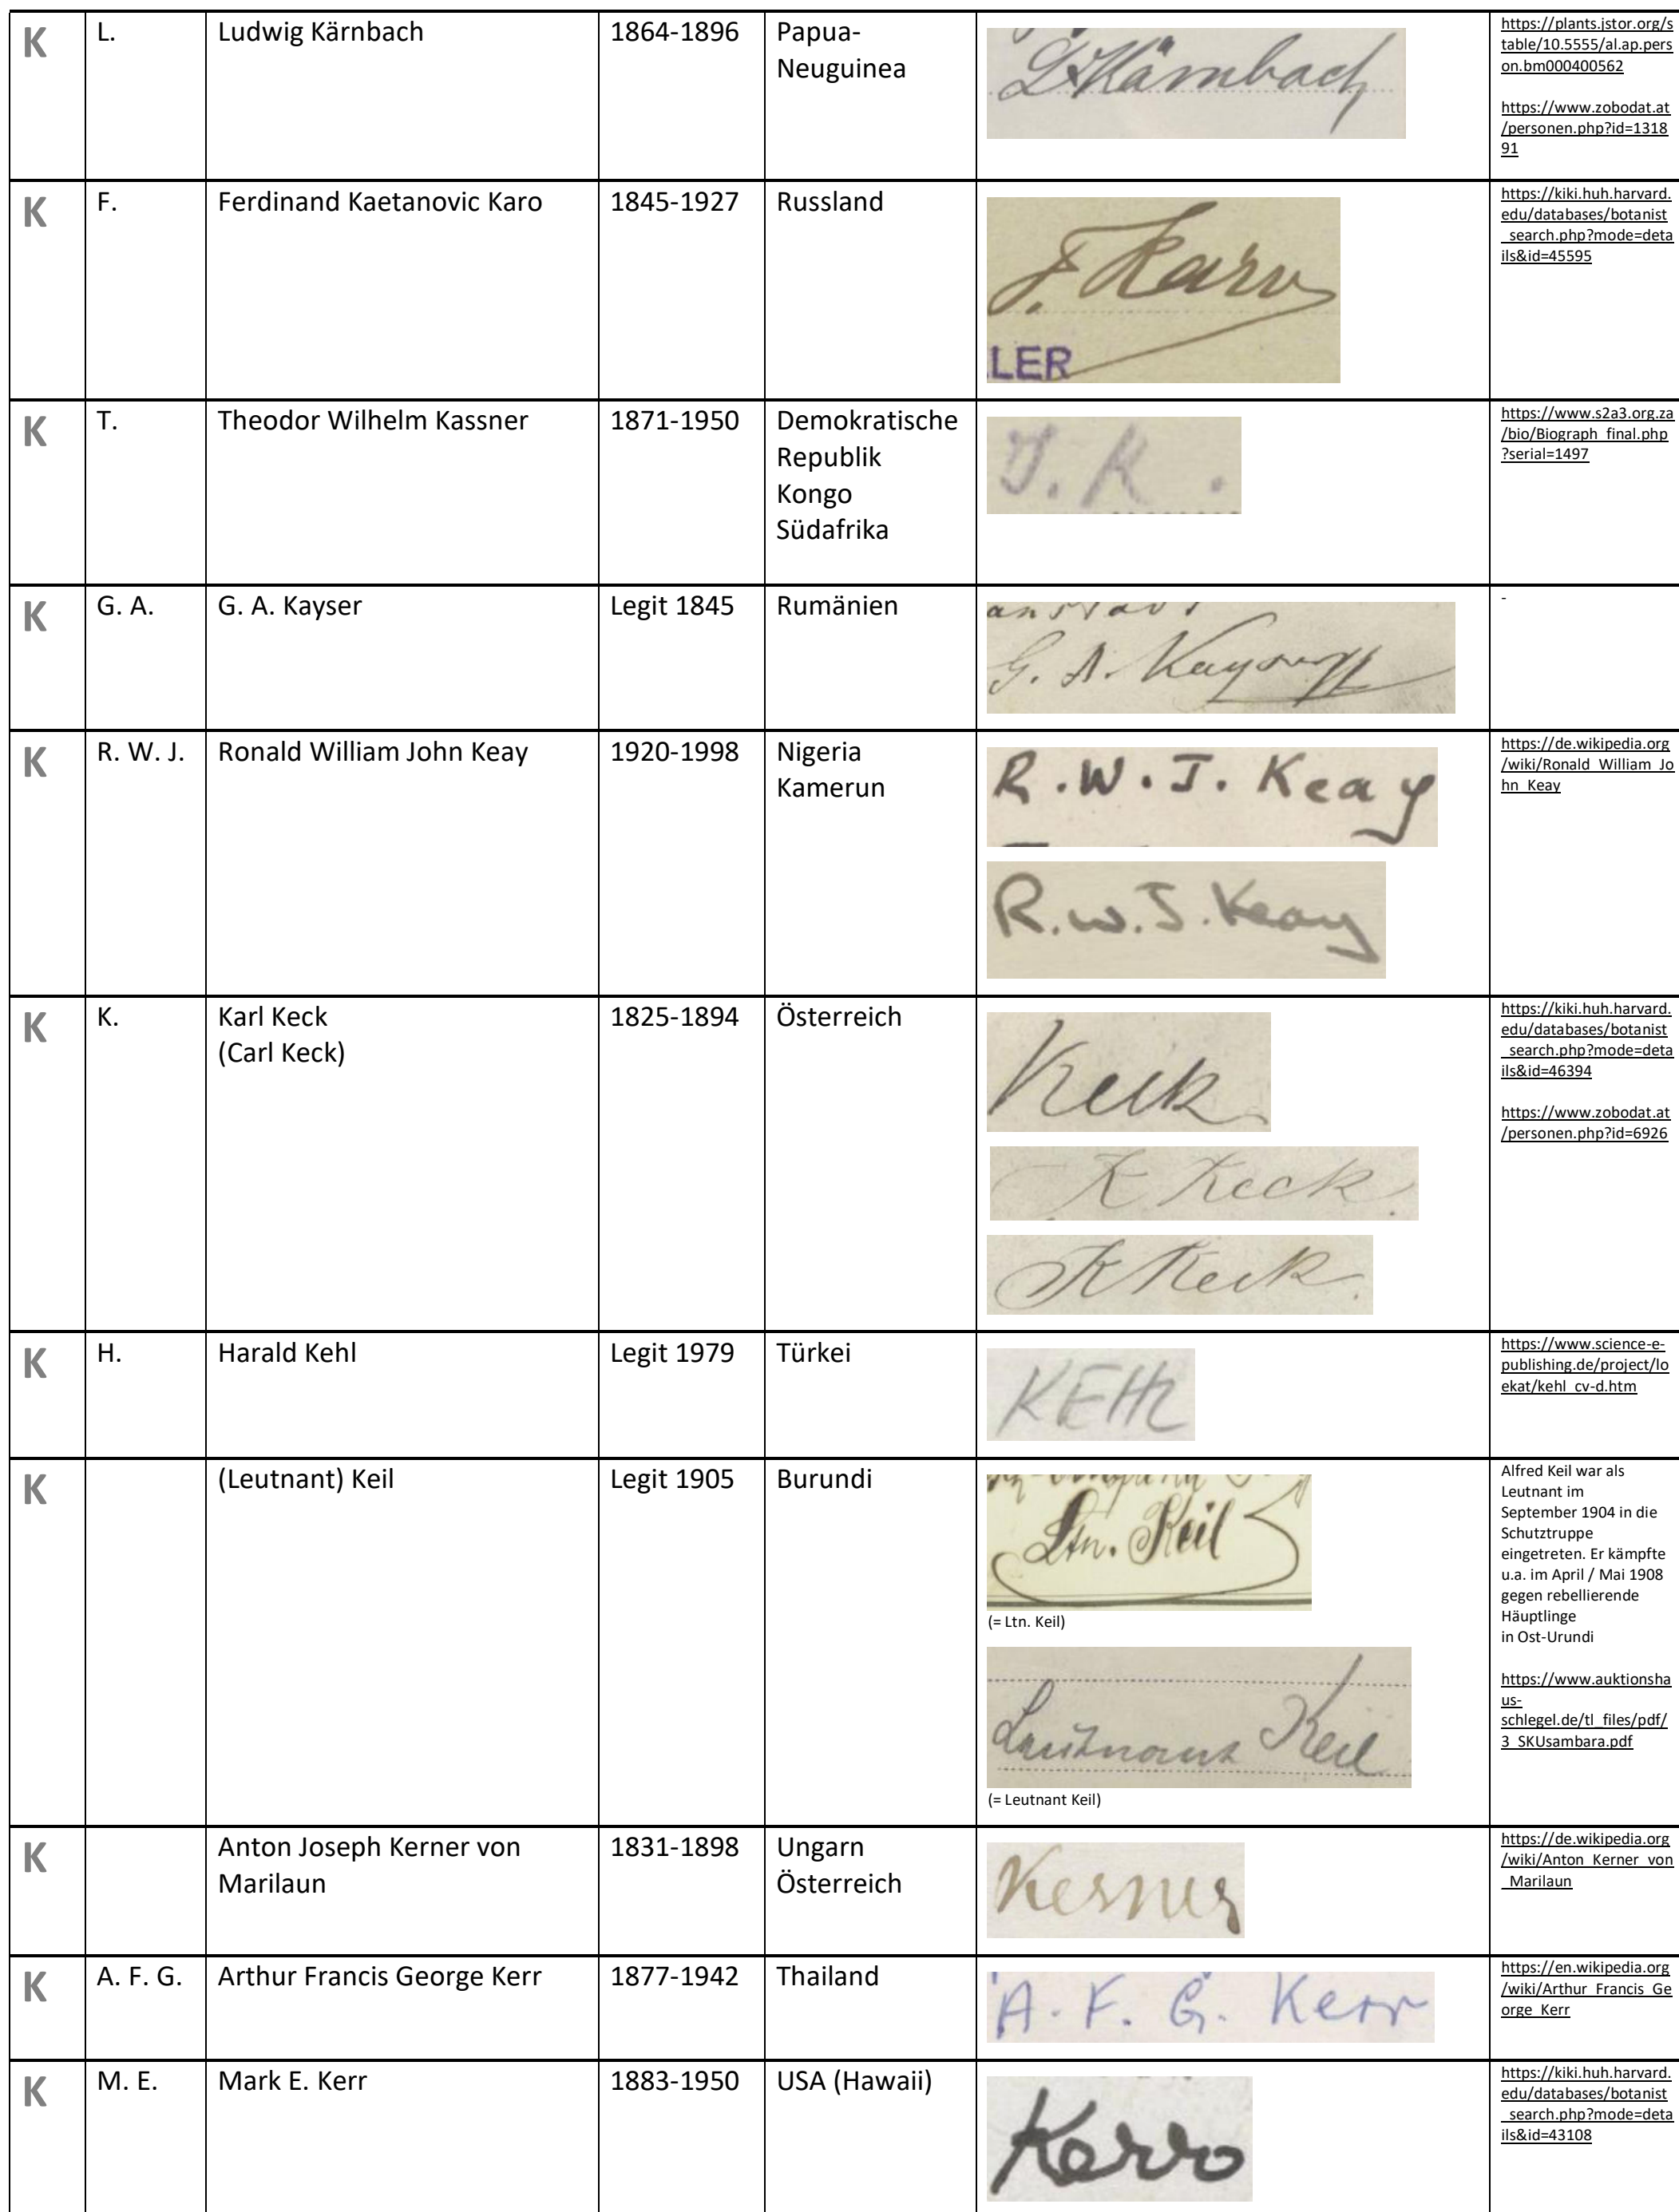 K L. Ludwig Kärnbach 1864-1896 Papua-
Neuguinea
L Kärnbach
https://plants.jstor.org/s
table/10.5555/al.ap.pers
on.bm000400562
https://www.zobodat.at
/personen.php?id=1318
91
K F. Ferdinand Kaetanovic Karo 1845-1927 Russland
F. Karo
LER
https://kiki.huh.harvard.
edu/databases/botanist
_search.php?mode=deta
ils&id=45595
K T. Theodor Wilhelm Kassner 1871-1950 Demokratische
Republik
Kongo
Südafrika
T. K.
https://www.s2a3.org.za
/bio/Biograph_final.php
?serial=1497
K G. A. G. A. Kayser Legit 1845 Rumänien
G. A. Kayser
-
K R. W. J. Ronald William John Keay 1920-1998 Nigeria
Kamerun
R.W.J. Keay
R.W.J. Keay
https://de.wikipedia.org
/wiki/Ronald_William_Jo
hn_Keay
K K. Karl Keck 1825-1894 Österreich
(Carl Keck)
Keck
K Keck.
K Keck.
https://kiki.huh.harvard.
edu/databases/botanist
_search.php?mode=deta
ils&id=46394
https://www.zobodat.at
/personen.php?id=6926
K H. Harald Kehl Legit 1979 Türkei
KEHL
https://www.science-e-
publishing.de/project/lo
ekat/kehl_cv-d.htm
K (Leutnant) Keil Legit 1905 Burundi
Ltn. Keil
(= Ltn. Keil)
Leutnant Keil
(= Leutnant Keil)
Alfred Keil war als
Leutnant im
September 1904 in die
Schutztruppe
eingetreten. Er kämpfte
u.a. im April / Mai 1908
gegen rebellierende
Häuptlinge
in Ost-Urundi
https://www.auktionsha
us-
schlegel.de/tl_files/pdf/
3_SKUsambara.pdf
K Anton Joseph Kerner von 1831-1898 Ungarn
Marilaun Österreich
Kerner
https://de.wikipedia.org
/wiki/Anton_Kerner_von
_Marilaun
K A. F. G. Arthur Francis George Kerr 1877-1942 Thailand
A. F. G. Kerr
https://en.wikipedia.org
/wiki/Arthur_Francis_Ge
orge_Kerr
K M. E. Mark E. Kerr 1883-1950 USA (Hawaii)
Kerr
https://kiki.huh.harvard.
edu/databases/botanist
_search.php?mode=deta
ils&id=43108